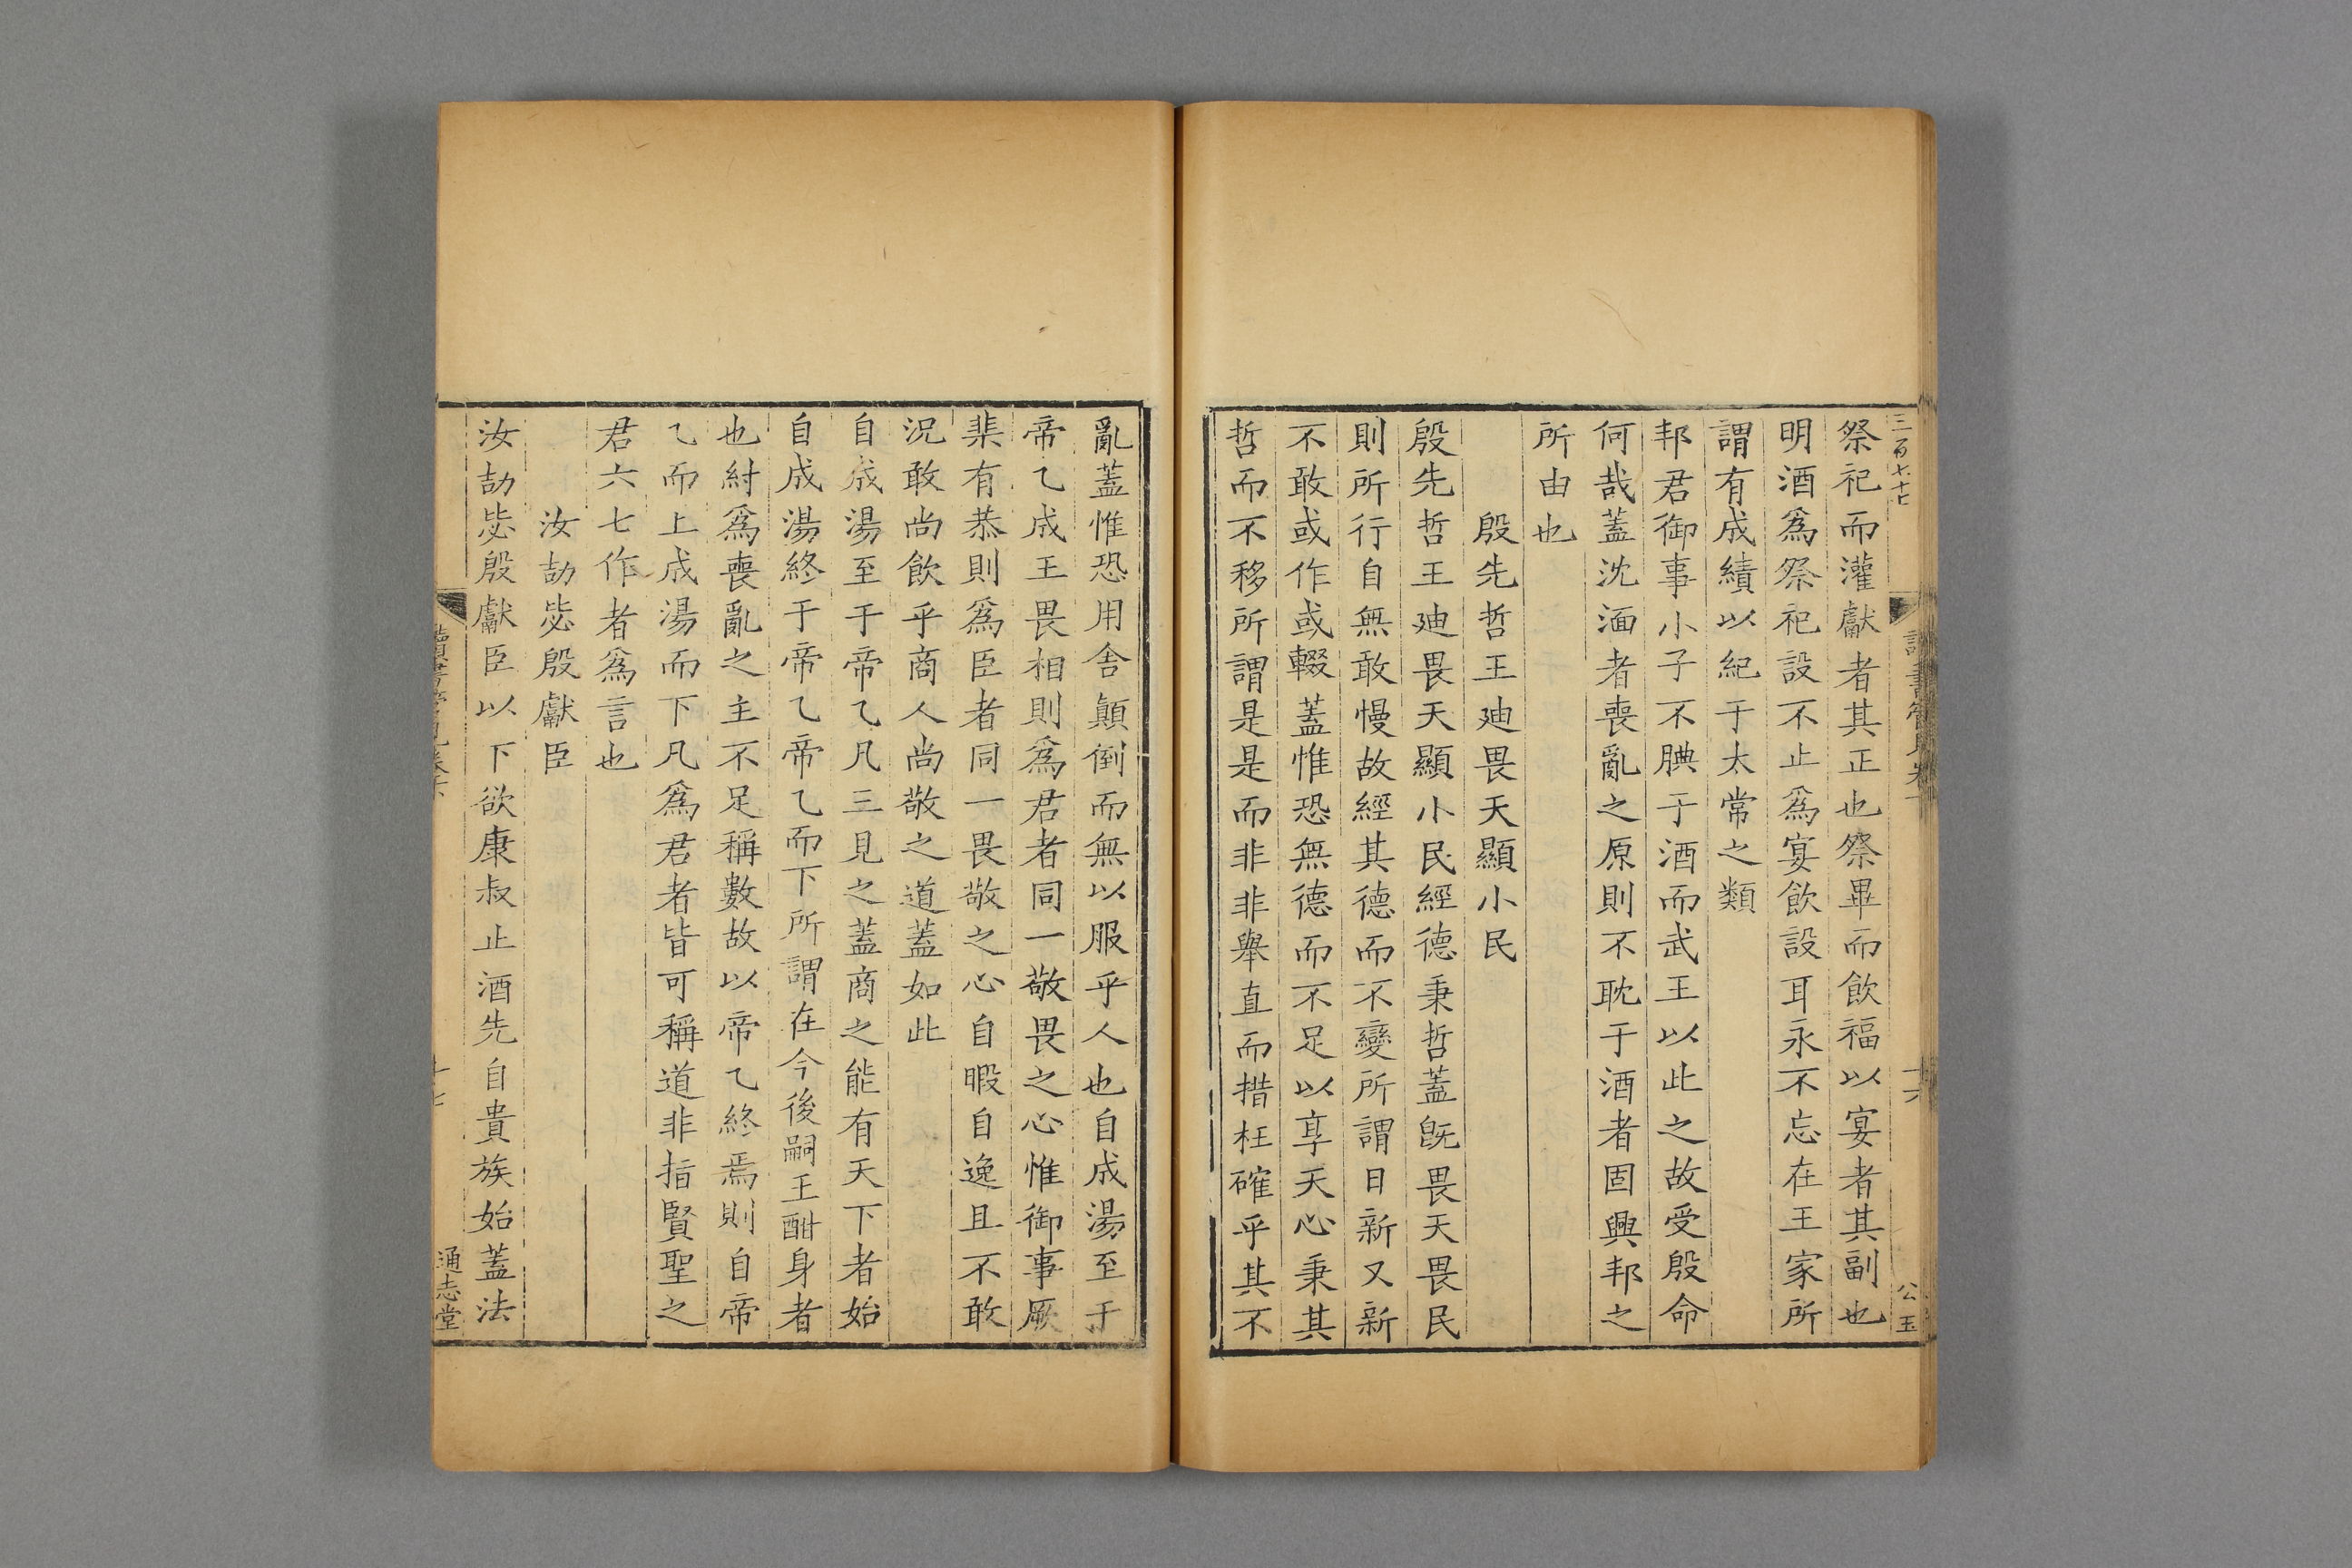 三百七十七
讀書管見卷下
十六
公玉
祭祀而灌獻者其正也祭畢而飲福以宴者其副也
明酒爲祭祀設不止爲宴飲設耳永不忘在王家所
謂有成績以紀于太常之類
邦君御事小子不腆于酒而武王以此之故受殷命
何哉蓋沈湎者喪亂之原則不耽于酒者固興邦之
所由也
殷先哲王廸畏天顯小民
殷先哲王廸畏天顯小民經德秉哲蓋旣畏天畏民
則所行自無敢慢故經其德而不變所謂日新又新
不敢或作或輟蓋惟恐無德而不足以享天心秉其
哲而不移所謂是是而非非舉直而措枉確乎其不
亂蓋惟恐用舍顛倒而無以服乎人也自成湯至于
帝乙成王畏相則爲君者同一敬畏之心惟御事厥
棐有恭則爲臣者同一畏敬之心自暇自逸且不敢
況敢尚飲乎商人尚敬之道蓋如此
自成湯至于帝乙凡三見之蓋商之能有天下者始
自成湯終于帝乙帝乙而下所謂在今後嗣王酣身者
也紂爲喪亂之主不足稱數故以帝乙終焉則自帝
乙而上成湯而下凡爲君者皆可稱道非指賢聖之
君六七作者爲言也
汝劼毖殷獻臣
汝劼毖殷獻臣以下欲康叔止酒先自貴族始蓋法
讀書管見卷下
十七
通志堂